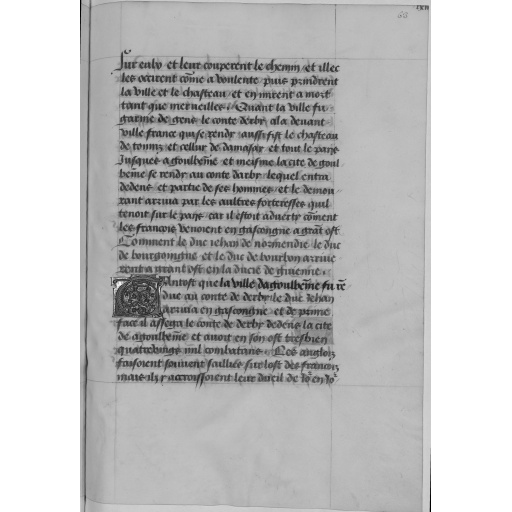 lxii
62
sur eulx et leur couperent le chemin et illec
les occirent cõme a voulente puis prindrent
la ville et le chasteau et en mirent a mort
tant que merveilles. Quant la ville fu
garnie de gens le conte derby ala devant
ville franche qui se rendy aussi fist le chasteau
de et cellui de damasax et tout le pays
Jusques a goulesme et mesme la cite de goul
lesme se rendy au conte darby lequel entra
dedens et partie de ses hommes et le demou
rant arriva par les aultres forteresses quil
tenoit sur le pays car il estoit adverty cõment
les francois venoient en gascongne a grãt ost
Comment le duc iehan de normendie le duc
de bourgoingne et le duc de bourbon arrive
rent a grant ost en la ducie de guienne.
Antost que la ville dagoulesme fu rẽ
due au conte de derby le duc Jehan
arriva en gascongne et de prime
face il assega le conte de derby dedens la cite
de agoulesme et avoit en son ost tresbien
quatrevings mil combatans. Les anglois
faisoient souvent saillies sur lost des francois
mais ilz y accroissoient leur dueil de Jo᷑ en Jo᷑